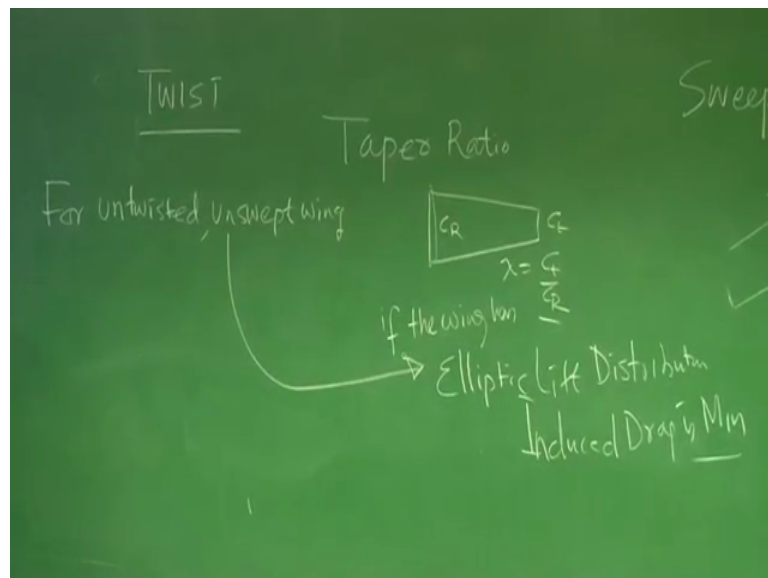 TWIST
Sweep
Taper Ratio
For untwisted, unswept wing
CR
Ct
λ = Ct
CR
if the wing has
Elliptic Lift Distributn
Induced Drag is Min